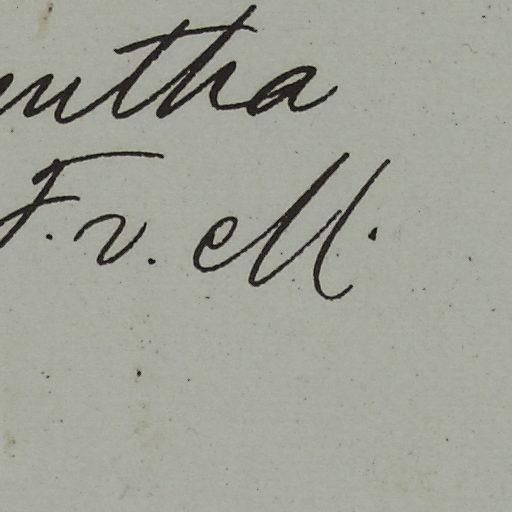 mtha
F. v. M.